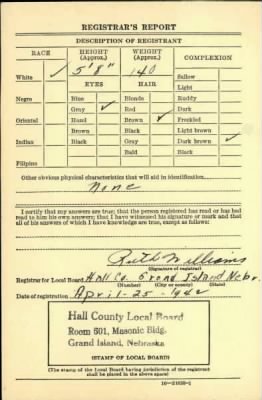 REGISTRAR'S REPORT
DESCRIPTION OF REGISTRANT
RACE HEIGHT (Approx.) WEIGHT (Approx.) COMPLEXION
White ✓ 5'8" 140 Sallow
EYES HAIR Light
Negro Blue Blonde Ruddy
Gray ✓ Red ✓ Dark
Oriental Hazel Brown Freckled
Brown Black Light brown
Indian Black Gray Dark brown ✓
Bald Black
Filipino
Other obvious physical characteristics that will aid in identification
None
I certify that my answers are true; that the person registered has read or has had
read to him his own answers; that I have witnessed his signature or mark and that
all of his answers of which I have knowledge are true, except as follows:
Ruth Williams
(Signature of registrar)
Registrar for Local Board Hall Co. Grand Island Nebr.
(Number) (City or county) (State)
Date of registration April-25-1942
Hall County Local Board
Room 601, Masonic Bldg.
Grand Island, Nebraska
(STAMP OF LOCAL BOARD)
(The stamp of the Local Board having jurisdiction of the registrant
shall be placed in the above space)